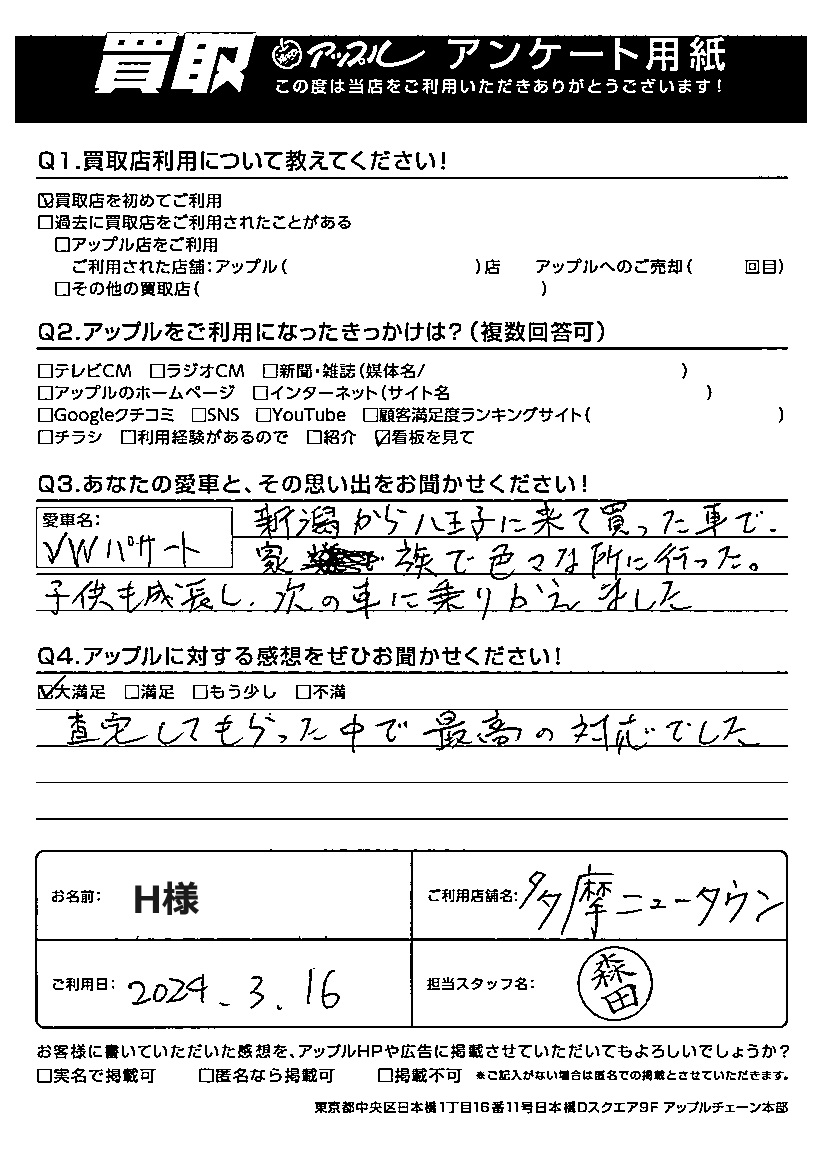 買取 アップル アンケート用紙
この度は当店をご利用いただきありがとうございます!
Q1.買取店利用について教えてください!
☑買取店を初めてご利用
□過去に買取店をご利用されたことがある
□アップル店をご利用
ご利用された店舗:アップル( )店 アップルへのご売却( 回目)
□その他の買取店( )
Q2.アップルをご利用になったきっかけは?(複数回答可)
□テレビCM □ラジオCM □新聞・雑誌(媒体名/ )
□アップルのホームページ □インターネット(サイト名 )
□Googleクチコミ □SNS □YouTube □顧客満足度ランキングサイト( )
□チラシ □利用経験があるので □紹介 ☑看板を見て
Q3.あなたの愛車と、その思い出をお聞かせください!
愛車名:
VWパサート
新潟から八王子に来て買った車で、
家族で色々な所に行った。
子供も成長し、次の車に乗りかえました
Q4.アップルに対する感想をぜひお聞かせください!
☑大満足 □満足 □もう少し □不満
査定してもらった中で最高の対応でした
お名前: H様 ご利用店舗名: 多摩ニュータウン
ご利用日: 2024.3.16 担当スタッフ名: 森田
お客様に書いていただいた感想を、アップルHPや広告に掲載させていただいてもよろしいでしょうか?
□実名で掲載可 □匿名なら掲載可 □掲載不可 *ご記入がない場合は匿名での掲載とさせていただきます。
東京都中央区日本橋1丁目16番11号日本橋Dスクエア9F アップルチェーン本部